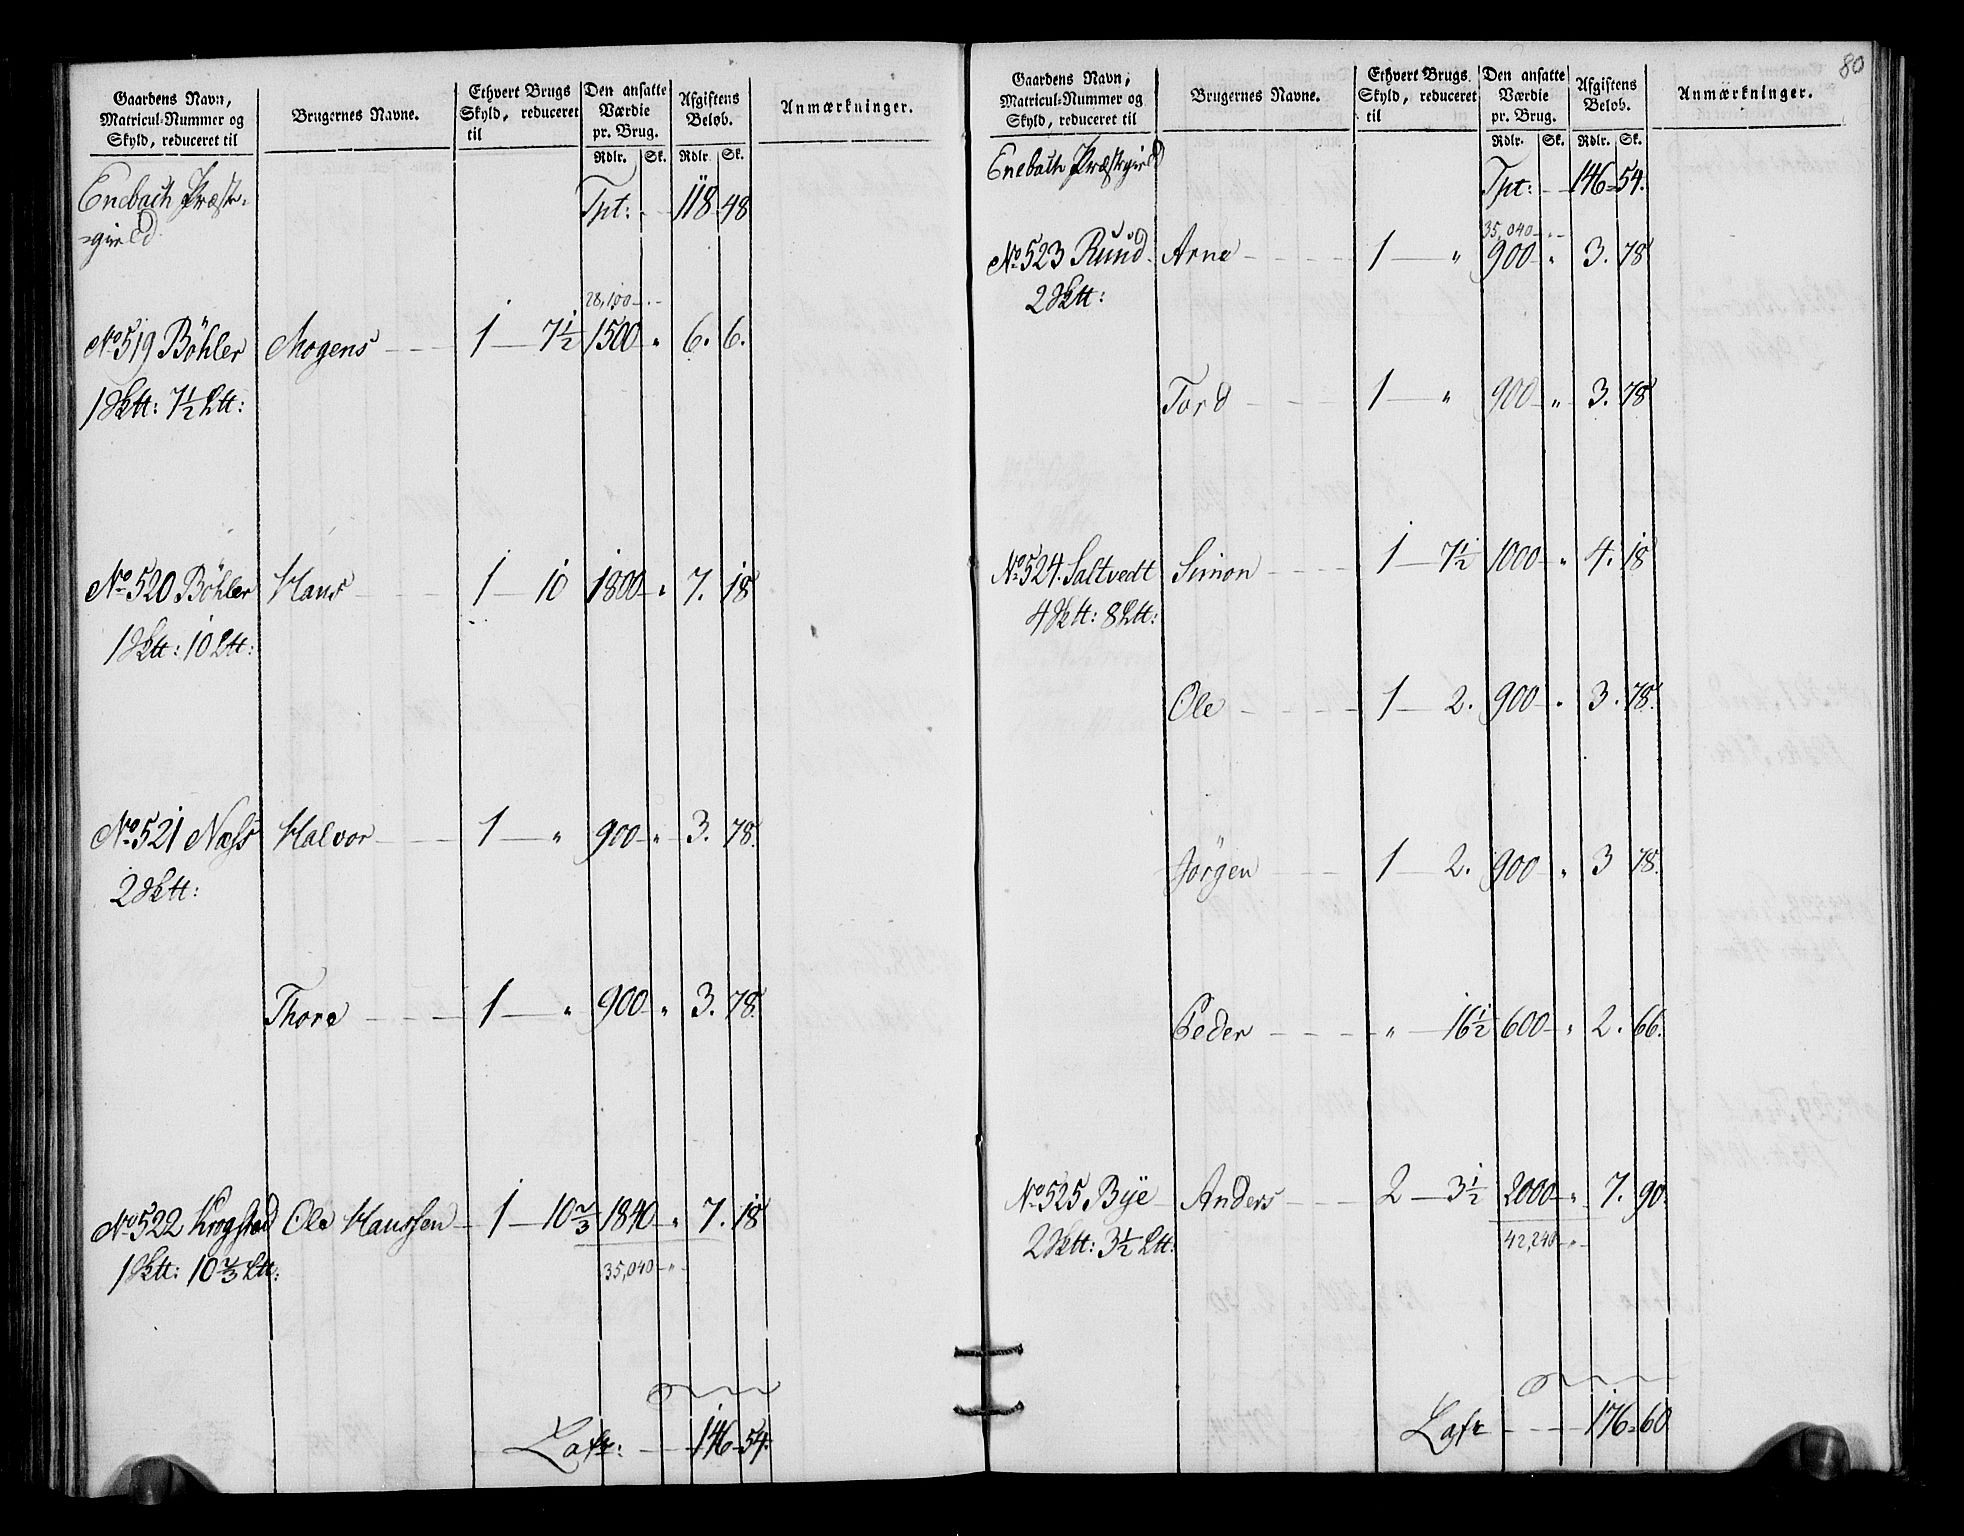 Gaardens Navn, Matricul-Nummer og Skyld, reduceret til | Brugernes Navne. | Ethvert Brugs Skyld, reduceret til | Den ansatte Værdie pr. Brug. Rdlr. Sk. | Afgiftens Beløb. Rdlr. Sk. | Anmærkninger.
Enebach Præste= Tpt: 118 48
=gield.
28,100
No 519 Böhler Mogens 1 7½ 1500 " 6. 6.
1 Sktt: 7½ Ltt:
No 520 Böhler Hans 1 10 1800 " 7. 18
1 Sktt: 10 Ltt:
No 521 Næss Halvor 1 " 900 " 3. 78.
2 Sktt:
Thore 1 " 900 " 3. 78.
No 522 Krogstad Ole Hanssen 1 10⅔ 1840 " 7. 18
1 Sktt: 10⅔ Ltt: 35,040 "
Latr: 146 54.
80
Gaardens Navn, Matricul-Nummer og Skyld, reduceret til | Brugernes Navne. | Ethvert Brugs Skyld, reduceret til | Den ansatte Værdie pr. Brug. Rdlr. Sk. | Afgiftens Beløb. Rdlr. Sk. | Anmærkninger.
Enebach Præstegield Tpt: 146 54.
35,040
No 523 Ruud Arne 1 " 900 " 3. 78
2 Sktt:
Tord 1 " 900 " 3. 78
No 524. Saltvedt Simon 1 7½ 1000 " 4. 18
4 Sktt: 8 Ltt:
Ole 1 2. 900 " 3. 78.
Jörgen 1 2. 900 " 3 78.
Peder " 16½ 600 " 2. 66.
No 525 Bÿe Anders 2 3½ 2000 " 7. 90.
2 Sktt: 3½ Ltt: 42,240 "
Latr 176 60